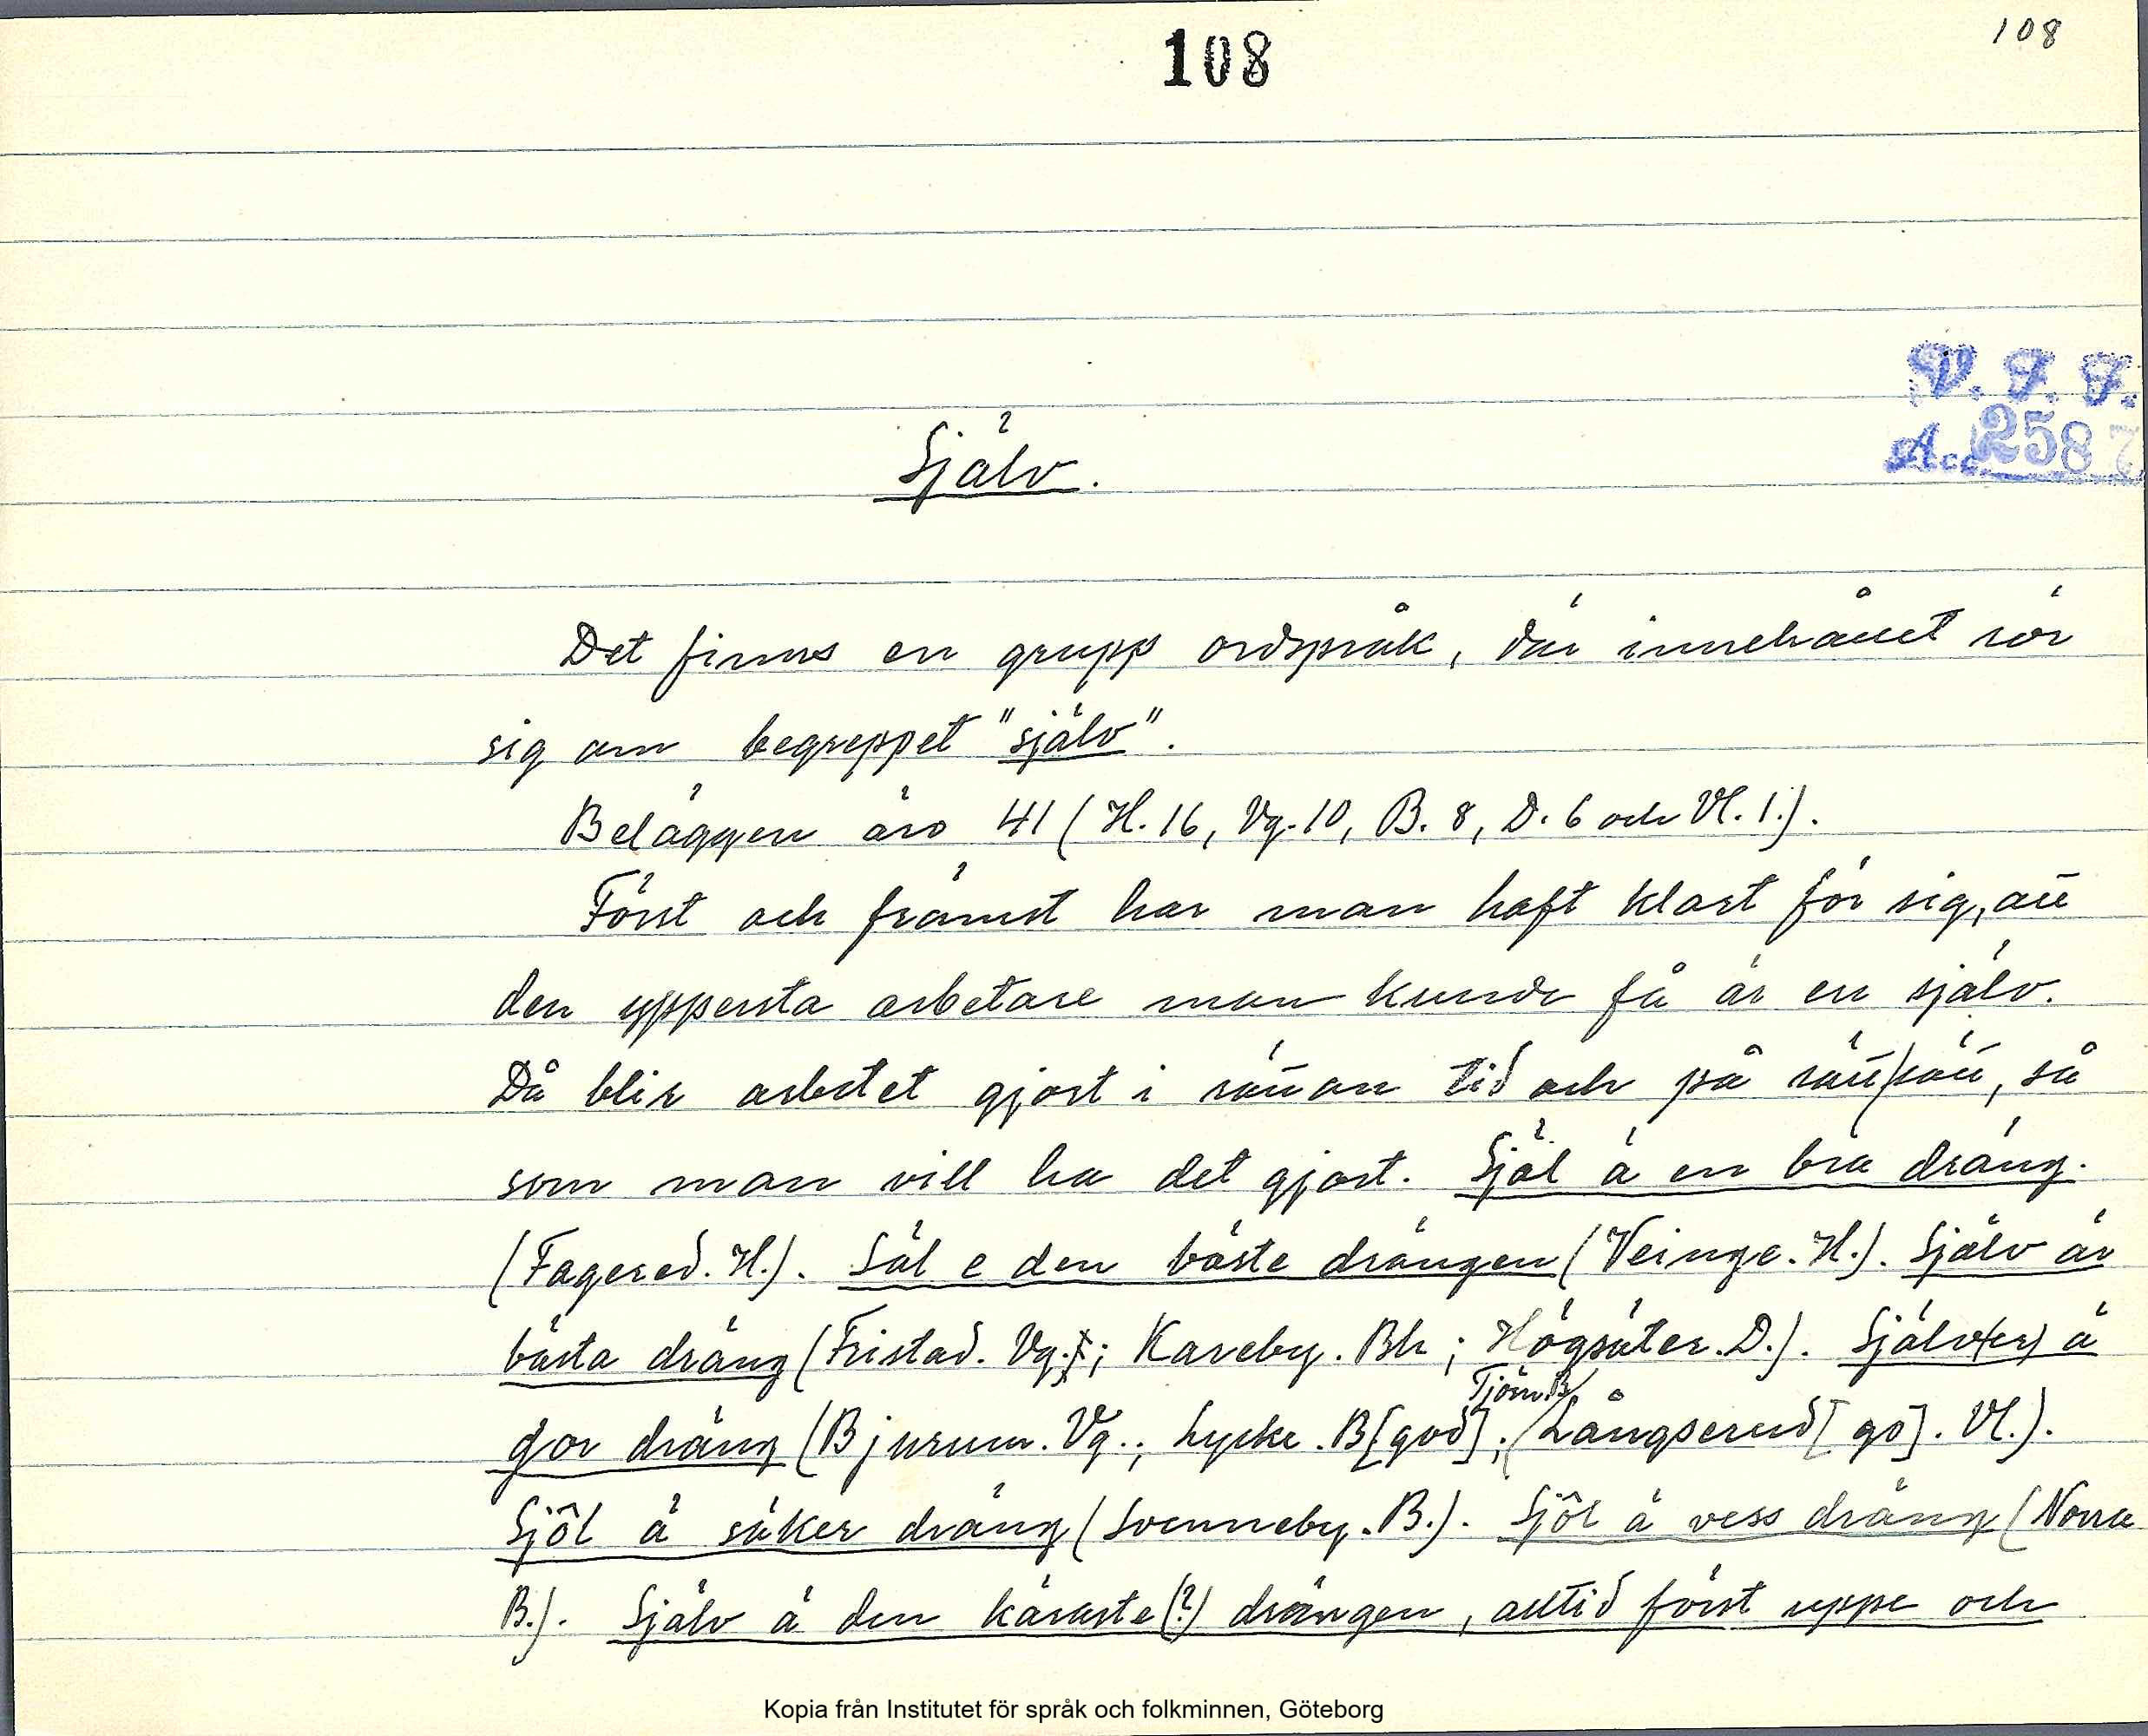 108
108
V. F. F.
Acc. 2587
Själv.
Det finns en grupp ordspråk, där innehållet rör
sig om begreppet "själv".
Beläggen äro 41 (H. 16, Vg. 10, B. 8, D. 6 och Vl. 1.).
Först och främst har man haft klart för sig, att
den yppersta arbetare man kunde få är en själv.
Då blir arbetet gjort i rättan tid och på rätt sätt, så
som man vill ha det gjort. Själ ä en bra dräng.
(Fagered. H.). Säl e den bäste drängen (Veinge. H.). Själv är
bästa dräng (Fristad. Vg.; Kareby. Bh; Högsäter. D.). Själv(er) ä
gor dräng (Bjurum. Vg.; Lycke. B[god]; Tjörn. B; Långserud [go]. Vl.).
Sjôl ä säker dräng (Svenneby. B.). Sjôl ä vess dräng (Norra
B.). Själv ä den käraste(?) drängen, alltid först uppe och
Kopia från Institutet för språk och folkminnen, Göteborg